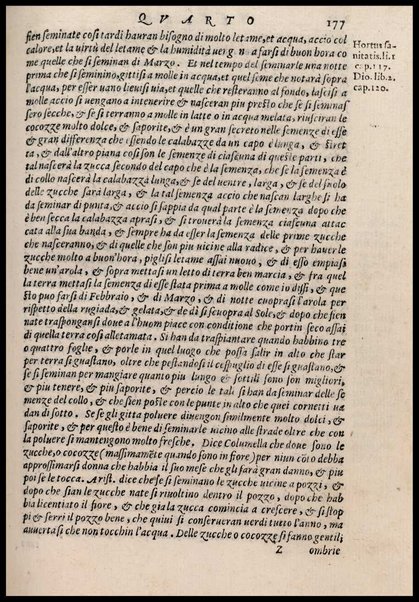 QVARTO 177
sien seminate cosi tardi hauran bisogno di molto letame, et acqua, accio col
calore, et la uirtù del letame & la humidità uengono a farsi di buon hora co
me quelle che si seminan di Marzo. Et nel tempo del seminarle una notte
prima che si seminino, gittisi a molle in acqua, et quel seme che notarà sopra
l'acqua, per esser uano lieuisi uia, et quelle che resteranno al fondo, lascisi a
molle accio si uengano a intenerire & nasceran piu presto che se si seminas
sero secche, & se si terranno a molle in latte o in acqua melata, riusciran le
cocozze molto dolce, & saporite, & è un gran secreto nelle semenze di esse
& gran differenza che essendo le calabazze da un capo è lunga, & stret
ta, & dall'altro piana cosi son le semenze di ciascuna di queste parti, che
tal nascerà la zucca secondo del capo che è la semenza, che se la semenza è
di collo nascerà la calabazza lunga, & se del uentre, larga, & se del suolo
delle zucche sarà larga, & la tal semenza accio che nascan larghe si ha
da seminar di punta, & accio si sappia da qual parte è la semenza dopo che
è ben secca la calabazza aprasi, & si trouerà la semenza ciascuna attac
cata alla sua banda, & sempre ha da esser la semenza delle prime zucche
che nasceranno, & di quelle che son piu uicine alla radice, & per hauer le
zucche molto a buon'hora, piglisi letame assai nuouo, & di esso empiasi
bene un'arola, & sopra mettasi un letto di terra ben marcia, & fra quel
la terra mettasi la semenza di essa stata prima a molle come io dissi, & que
sto puo farsi di Febbraio, & di Marzo, & di notte cuoprasi l'arola per
rispetto della rugiada, & gelata, & de dì si scuopra al Sole, & dopo che sien
nate traspongansi doue a l'huom piace con conditione che portin seco assai
di quella terra cosi alletamata. Si han da traspiantare quando habbino tre
o quattro foglie, & porle in quel luogo che possa salir in alto che star
per terra si guastano, oltre che pestandosi il cespuglio di esse si guastano, &
se si seminan per mangiare quanto piu lunghe & sottili sono son migliori,
& piu tenere, & piu saporite, & percio le tali si han da seminar delle se
menze del collo, & che sien poste con le punte in alto che quei cornetti ua
dan di sotto. Se se gli gitta poluere diuengon similmente molto dolci, &
saporite, & per questo è bene di seminarle uicino alle strade oltre che con
la poluere si mantengono molto fresche. Dice Columella che doue sono le
zucche, o cocozze (massimamẽte quando sono in fiore) per niun cõto debba
approssimarsi donna che habbia il suo mese che gli farà gran danno, & piu
poi se le tocca. Arist. dice che se si seminano le zucche uicine a pozzi, &
dopo che sian le zucche nate si riuoltino dentro il pozzo, dopo che hab
bia licentiato il fiore, & che gia la zucca comincia a crescere, & si stop
pi & serri il pozzo bene, che quiui si conserueran uerdi tutto l'anno, ma
auuertasi che non tocchin l'acqua. Delle zucche o cocozze si fanno gentili
Z ombrie
Hortus sa-
nitatis.li.1
cap.117.
Dio.lib.2.
cap.120.